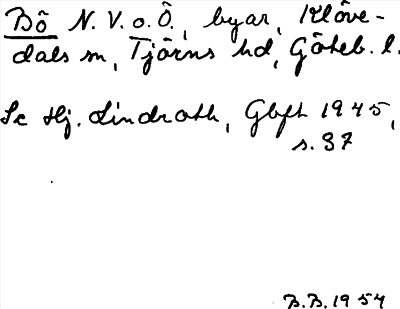 Bö N. V. o. Ö., byar, Klöve-
dals sn, Tjörns hd, Göteb. l.
Se Hj. Lindroth, Gbfh 1945,
s. 37
B.B. 1954